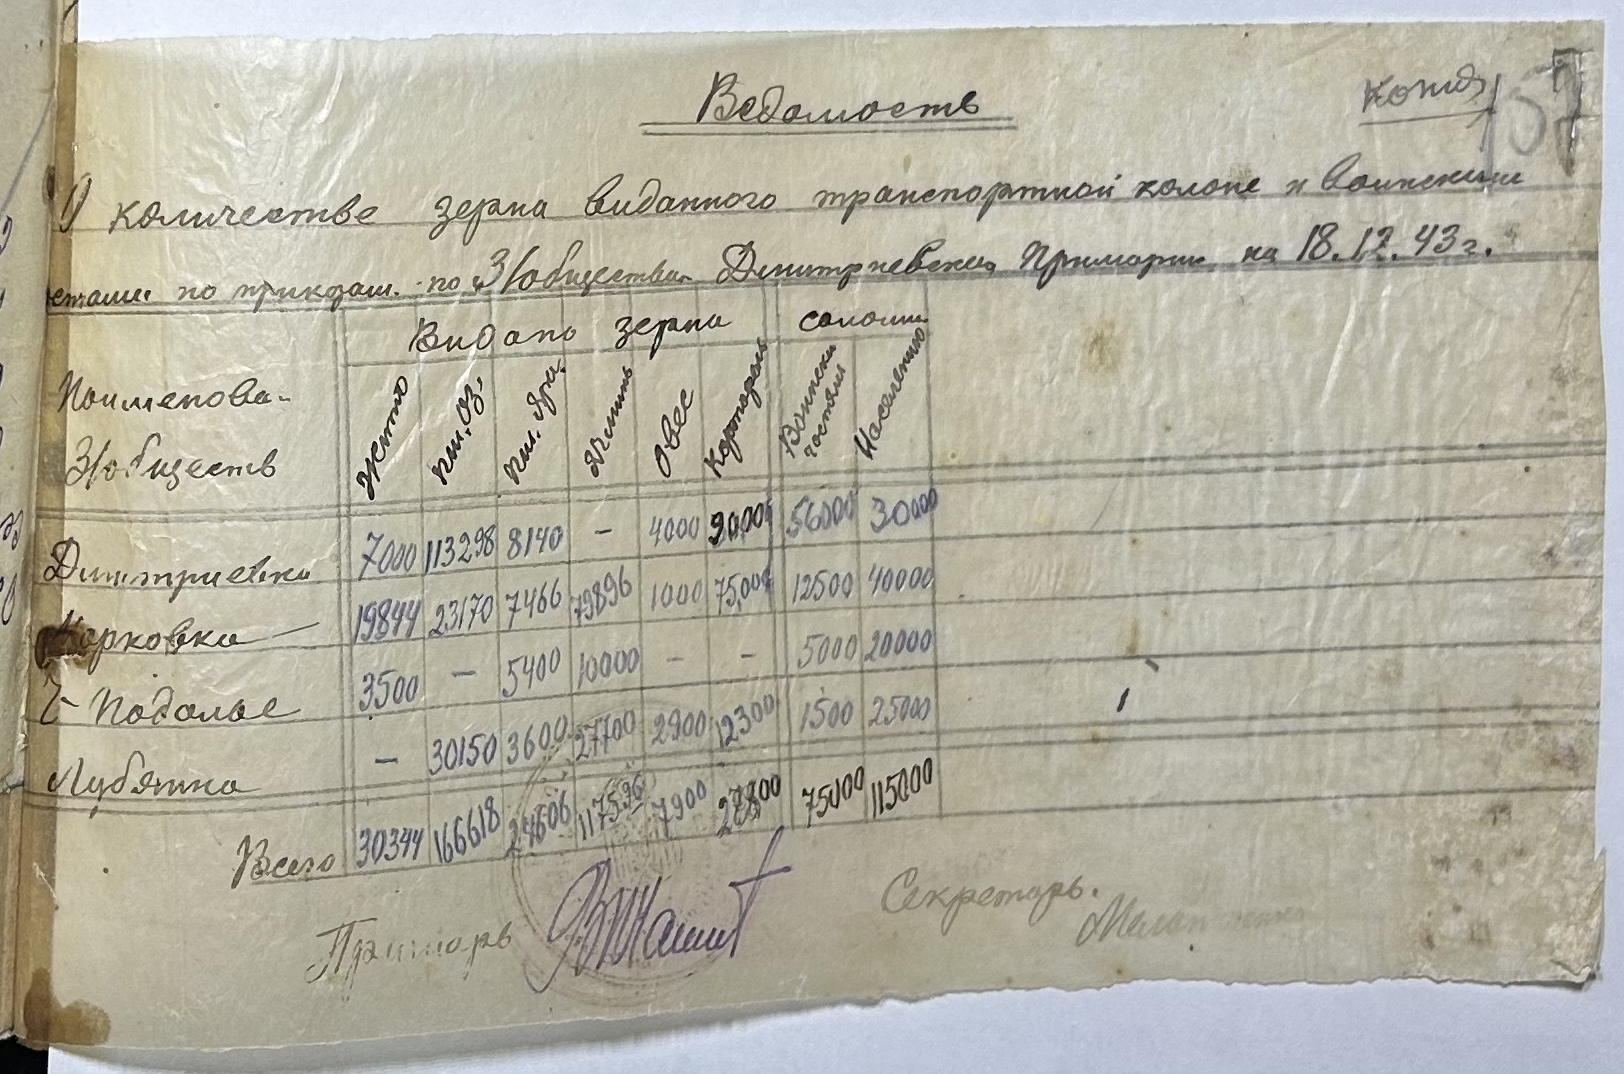 Ведомость
Копия
157
О количестве зерна виданного транспортной колоне и воинскими
стами по приказам. по З/обществам Дмитриевския Примарии на 18.12.43 г.
Видано зерна соломи
Наименова-
З/обществ
Жыто пш. оз. пш. яра. Ячмінь Овес Картофель Воински Населению
частями
Дмитриевка 7000 113298 8140 — 4000 56000 30000
Марковка 19844 23170 7466 79896 1000 75,00 12500 40000
Подолье 3500 — 5400 10000 — — 5000 20000
Лубянка — 30150 3600 27700 2900 12300 1500 25000
Всего 30344 166618 24606 117596 7900 75000 115000
Примарь
Секретарь.